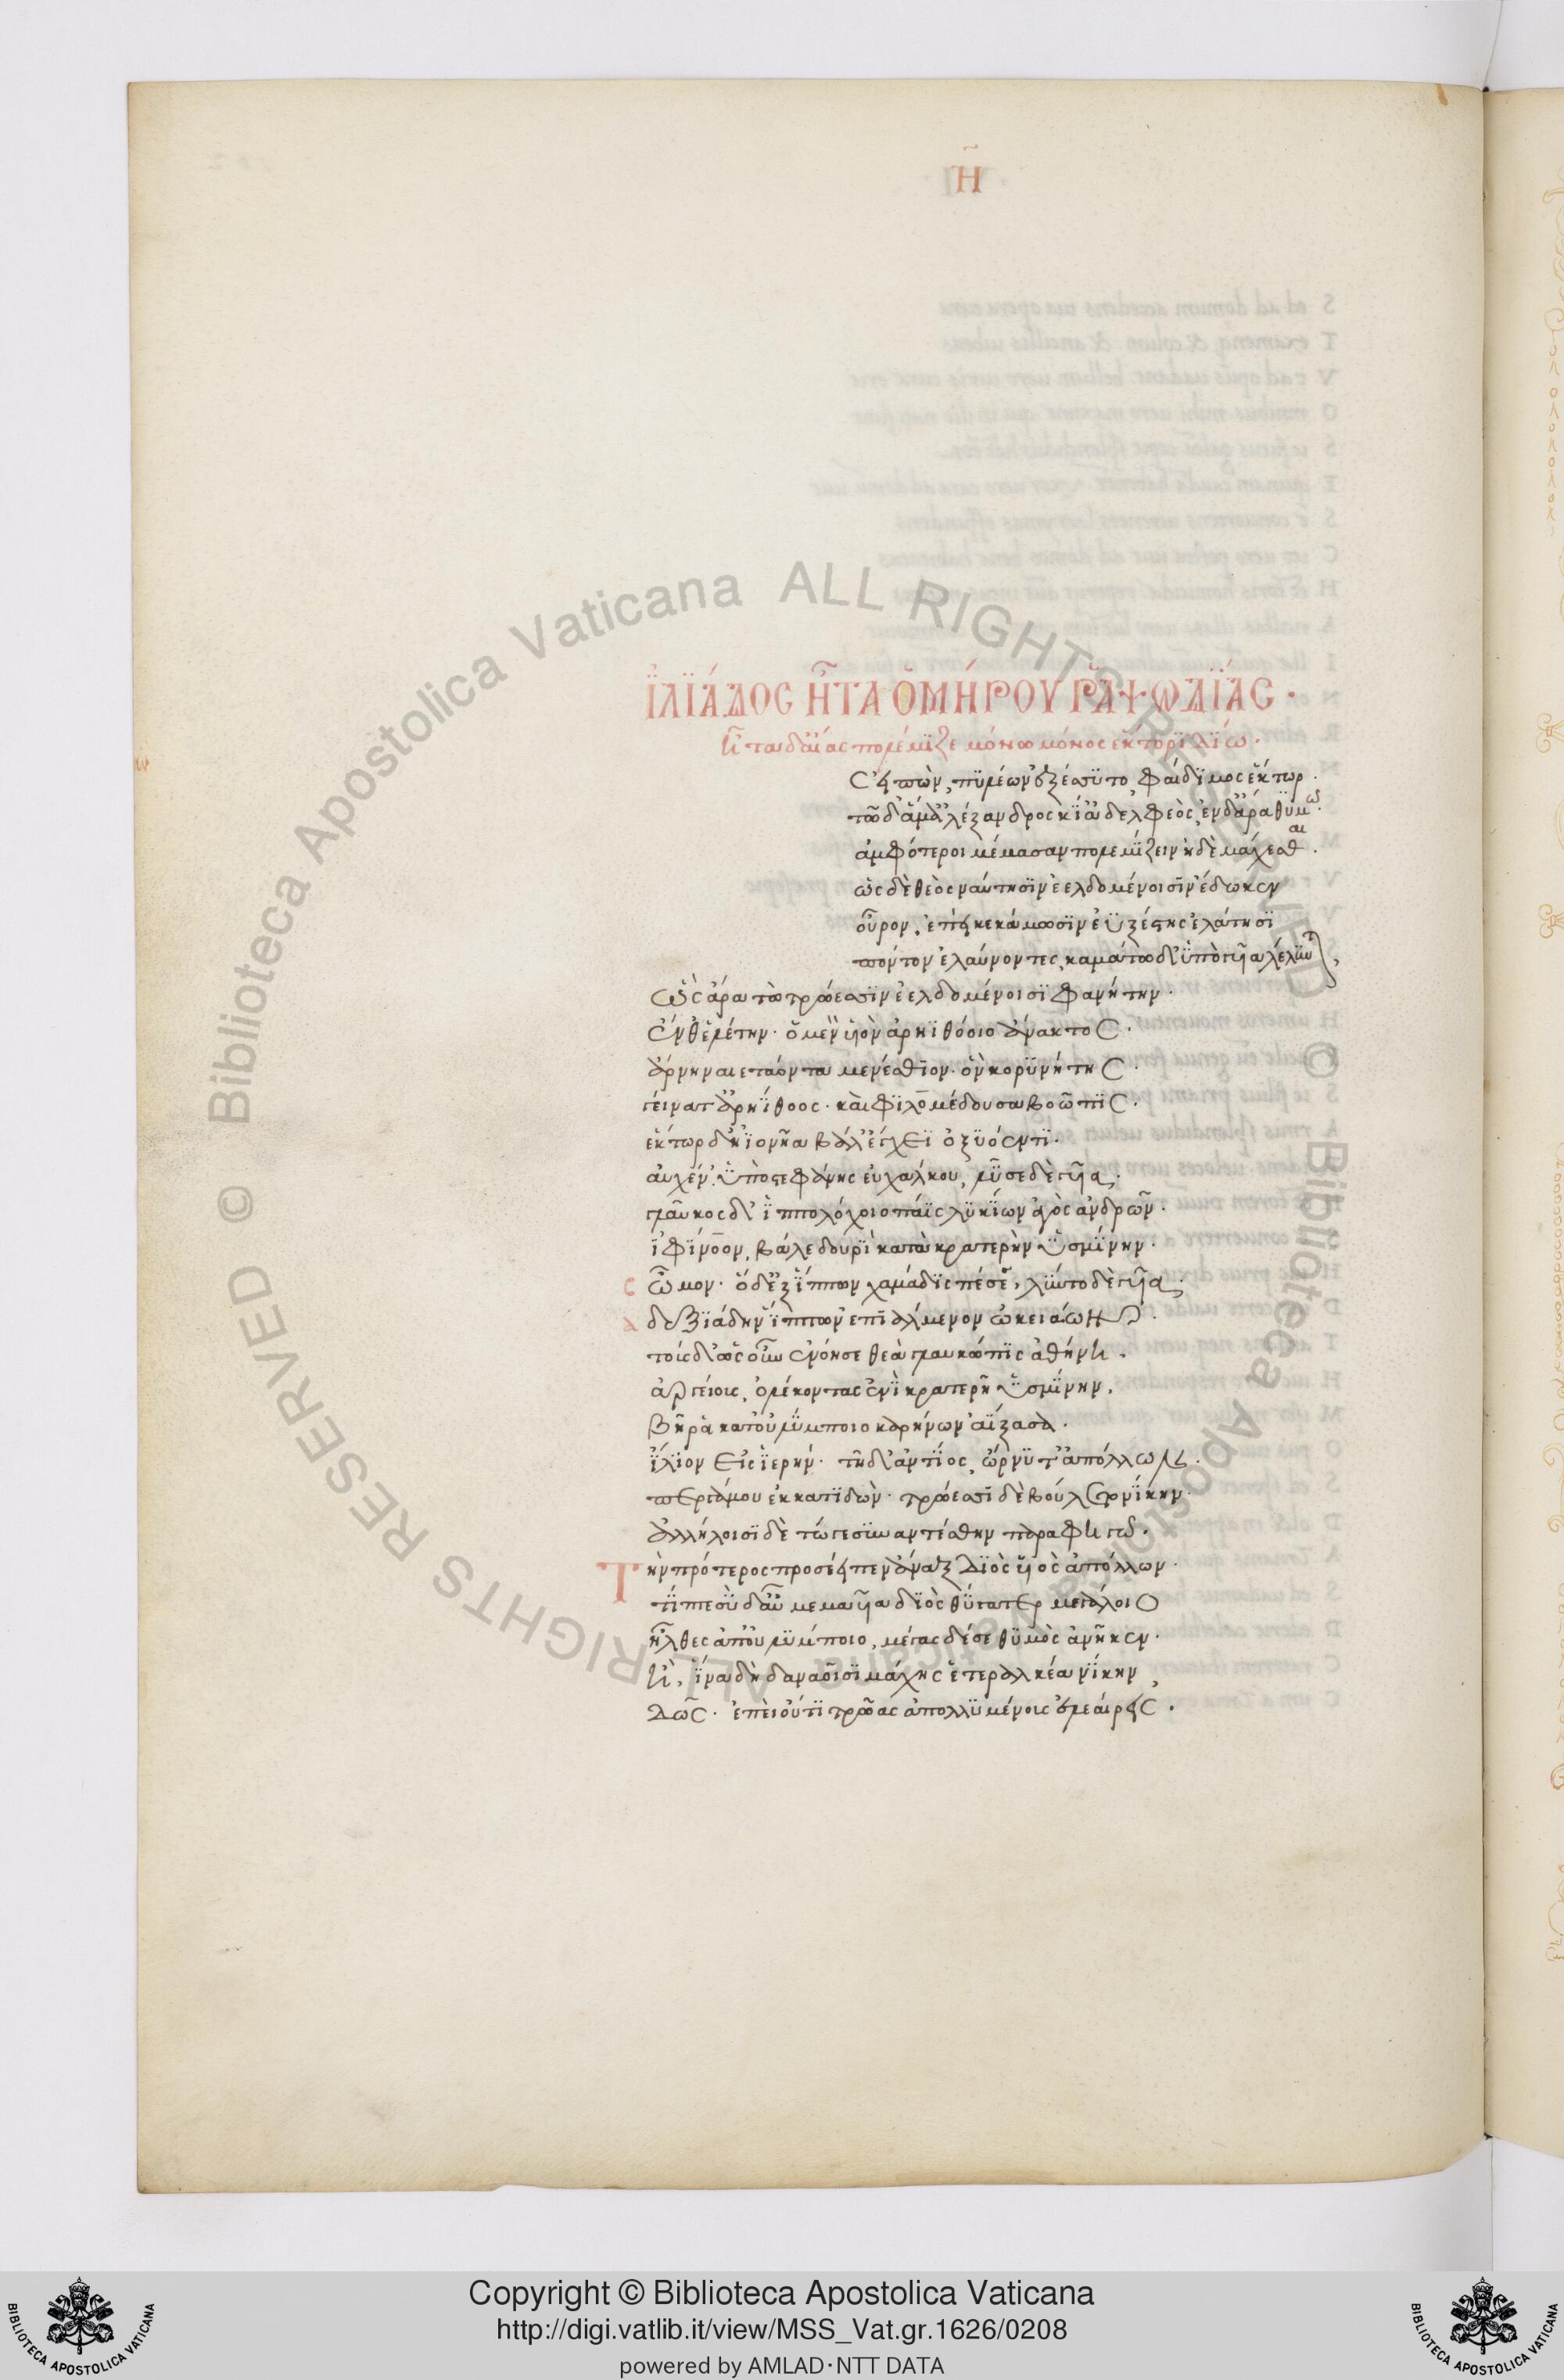 Η̃
ἸΛΙΆΔΟΣ ΗΤΑ ὉΜΉΡΟΥ ῬΑΨΩΔΊΑΣ ·
Η̃τα δ' αἴας πολέμιζε μόνω μόνος ἕκτορι δίω ·
Ὣς εἰπὼν, πυλέων ἐξέσσυτο φαίδιμος ἕκτωρ ·
τῶ δ' ἅμ' ἀλέξανδρος κί' ἀδελφεὸς, ἐν δ' ἄρα θυμῶ ·
ἀμφότεροι μέμασαν πολεμίζειν ἠδὲ μάχεσθαι ·
ὡς δὲ θεὸς ναύτησιν ἐελδομένοισιν ἔδωκεν
οὖρον, ἐπήν κε κάμωσιν ἐϋξέστης ἐλάτησι
πόντον ἐλαύνοντες, καμάτω δ' ὑπὸ γυῖα λέλυνται,
ὣς ἄρα τὼ τρώεσσιν ἐελδομένοισι φανήτην ·
Ἔνθ' ἑλέτην · ὁ μὲν υἱὸν ἀρηϊθόοιο ἄνακτος ·
ἄρνη ναιετάοντα μενέσθιον · ὃν κορυνήτης ·
γείνατ' ἀρηίθοος · καὶ φιλομέδουσα βοῶπις ·
ἕκτωρ δ' ἠϊονῆα βάλ' ἔγχεϊ ὀξυόεντι ·
αὐχέν' ὑπὸ στεφάνης εὐχάλκου, λῦσε δὲ γυῖα ·
γλαῦκος δ' ἱππολόχοιο πάϊς λυκίων ἀγὸς ἀνδρῶν ·
ἰφίνοον, βάλε δουρὶ κατὰ κρατερὴν ὑσμίνην ·
ὦμον · ὁ δ' ἐξ ἵππων χαμάδις πέσε, λύντο δὲ γυῖα ·
δεξιάδην ἵππων ἐπιάλμενον ὠκειάων ·
τοὺς δ' ὡς οὖν ἐνόησε θεὰ γλαυκῶπις ἀθήνη ·
ἀργείοις, ὀλέκοντας ἐνὶ κρατερῆ ὑσμίνην,
βῆ ρὰ κατ' οὐλύμποιο καρήνων ἀίξασα ·
ἴλιον εἰς ἱερήν · τῆ δ' ἀντίος, ὤρνυτ' ἀπόλλων ·
περγάμου ἐκκατιδὼν · τρώεσσι δὲ βούλετο νίκην ·
ἀλλήλοισι δὲ τώγε συναντέσθην παρὰ φηγῶ ·
Τὴν πρότερος προσέειπεν ἄναξ Διὸς υἱὸς ἀπόλλων ·
τίπτε σὺ δ' αὖ μεμαυῖα διὸς θύγατερ μεγάλοιο
ἦλθες ἀπ' οὐλύμποιο, μέγας δέ σε θυμὸς ἀνῆκεν ·
ἢ, ἵνα δὴ δαναοῖσι μάχης ἑτεραλκέα νίκην,
Δῶς · ἐπεὶ οὔτι τρῶας ἀπολλυμένοις ἐλεαίρεις ·
Biblioteca Apostolica Vaticana ALL RIGHTS RESERVED ©
Biblioteca Apostolica Vaticana ALL RIGHTS RESERVED ©
Copyright © Biblioteca Apostolica Vaticana
http://digi.vatlib.it/view/MSS_Vat.gr.1626/0208
powered by AMLAD·NTT DATA
BIBLIOTECA APOSTOLICA VATICANA
BIBLIOTECA APOSTOLICA VATICANA